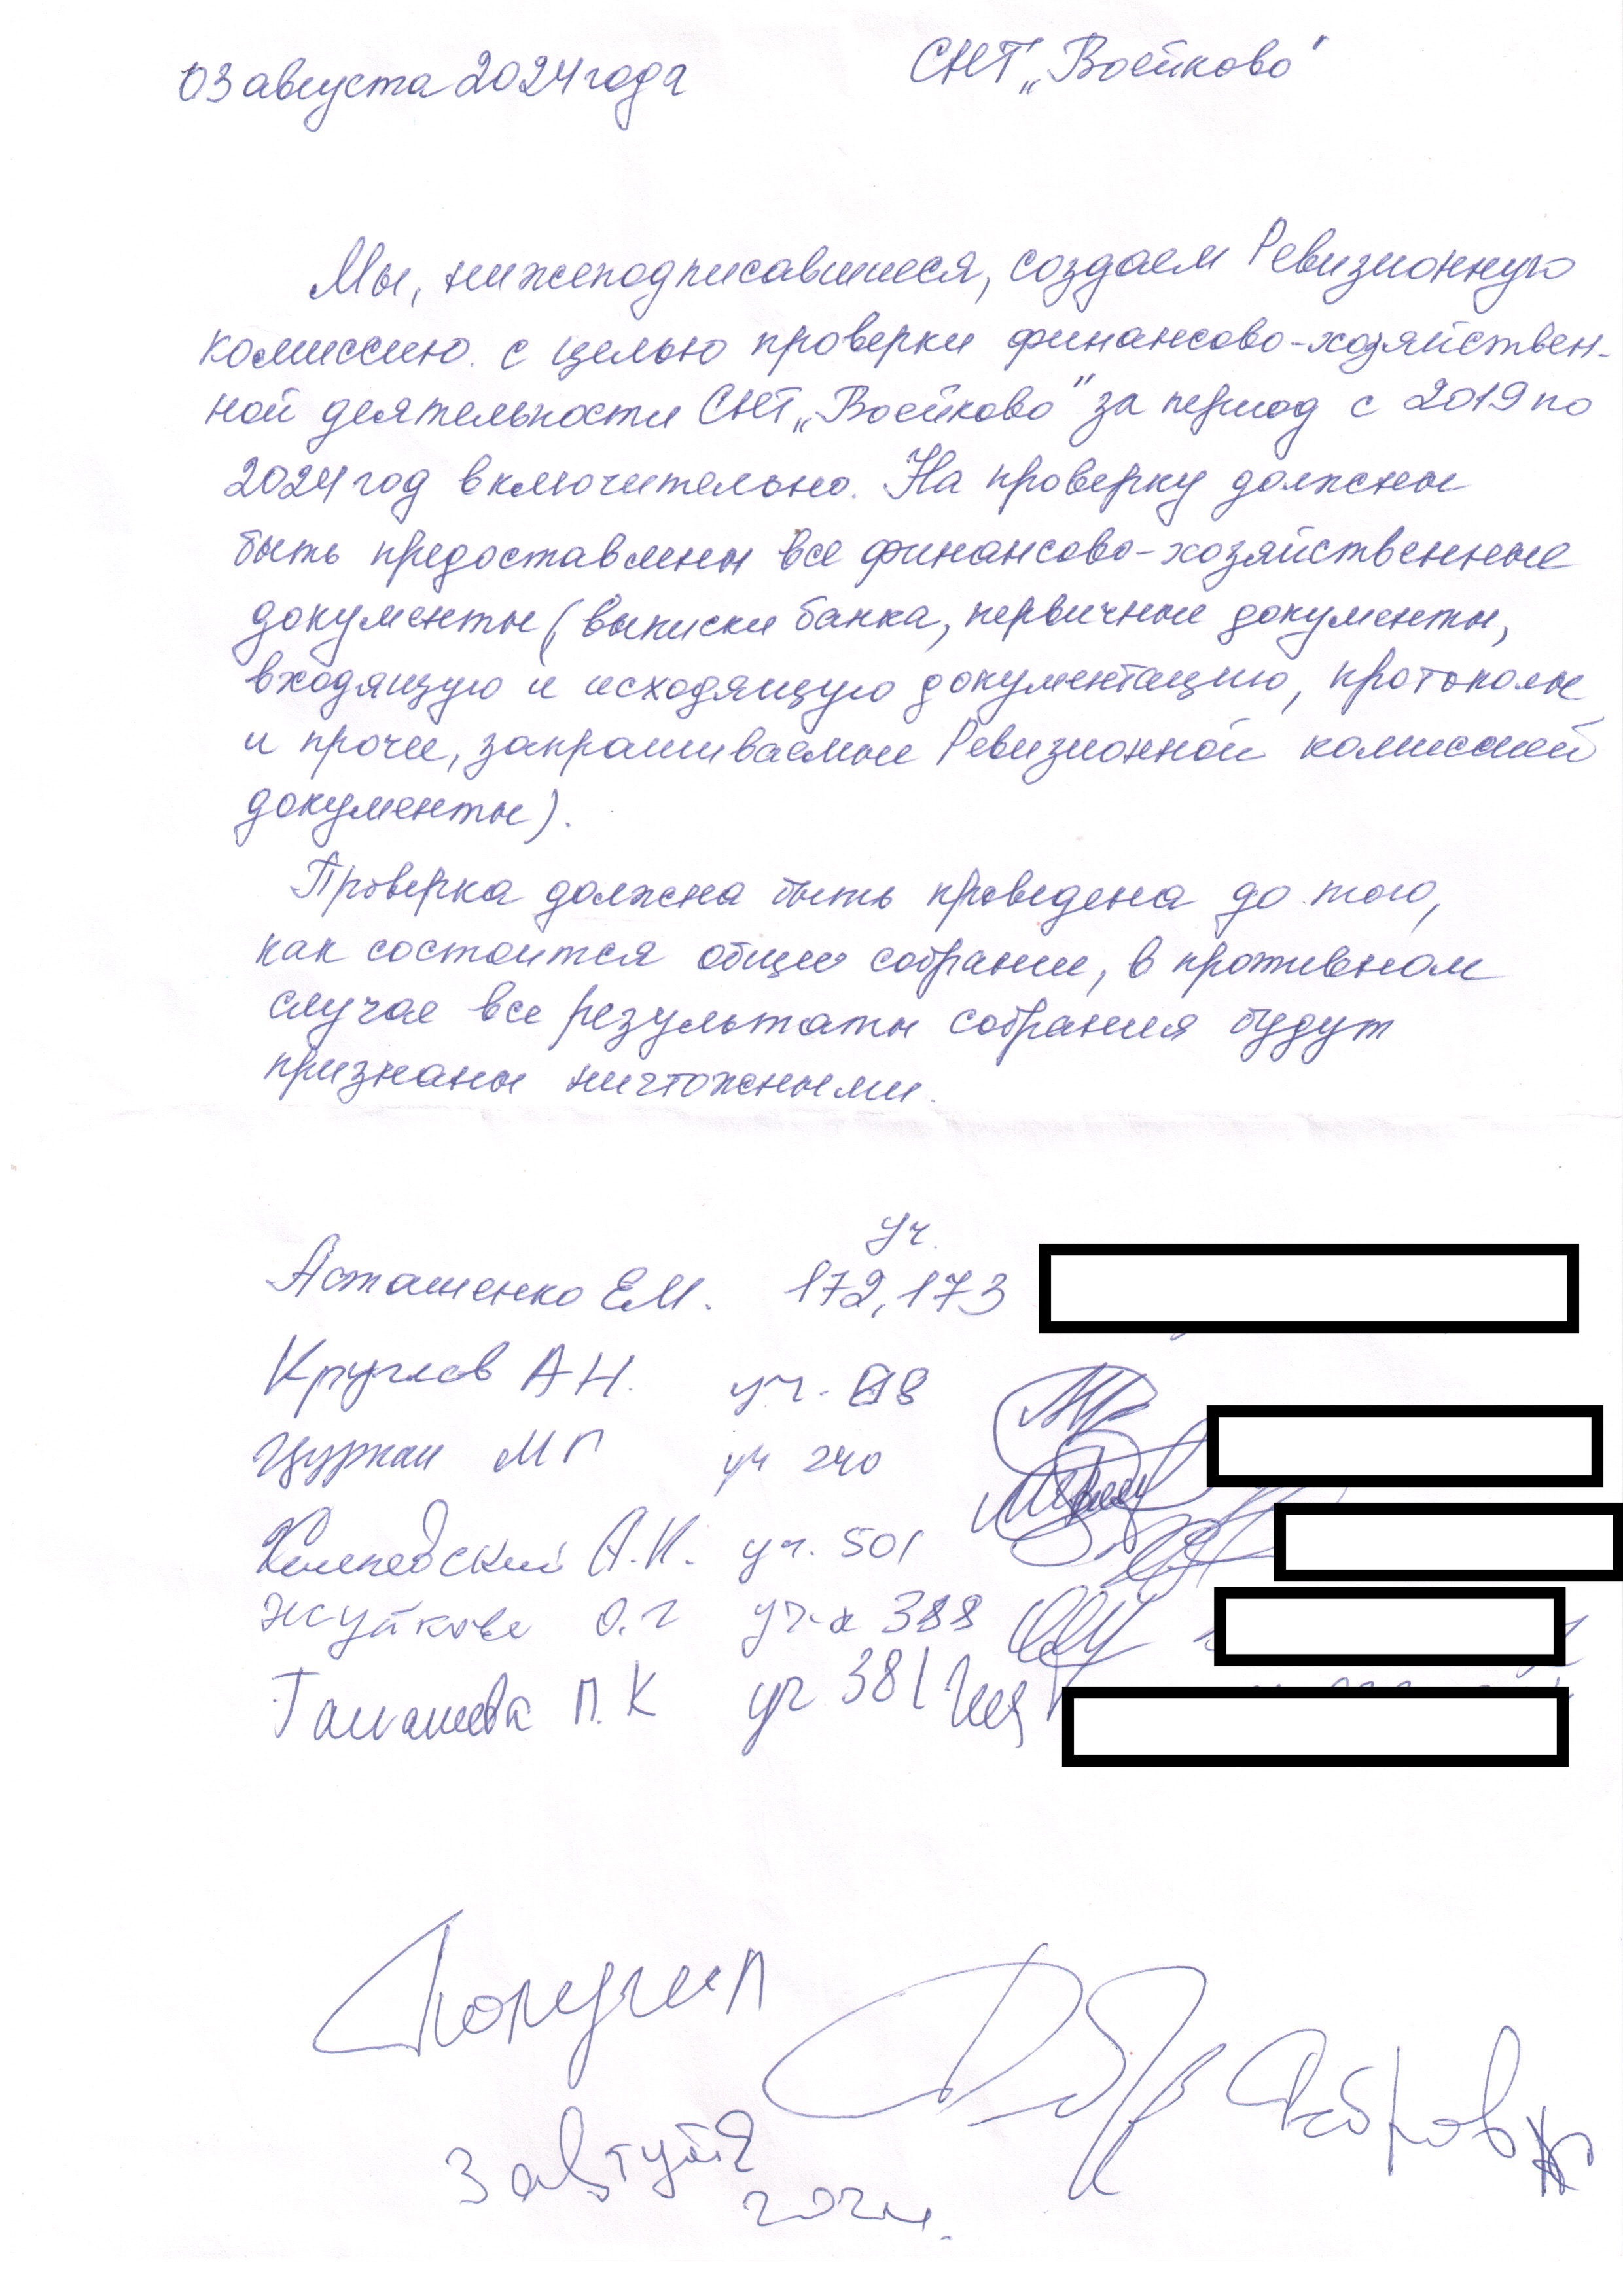 03 августа 2024 года СНТ „Воейково"
Мы, нижеподписавшиеся, создаем Ревизионную
комиссию с целью проверки финансово-хозяйствен-
ной деятельности СНТ „Воейково" за период с 2019 по
2024 год включительно. На проверку должны
быть предоставлены все финансово-хозяйственные
документы (выписки банка, первичные документы,
входящую и исходящую документацию, протоколы
и прочее, запрашиваемые Ревизионной комиссией
документы).
Проверка должна быть проведена до того,
как состоится общее собрание, в противном
случае все результаты собрания будут
признаны ничтожными.
уч.
Асташенко Е.М. 172, 173
Круглов А Н. уч.
Цуркан М П уч 240
А.И. уч. 501
О. Г уч-к 388
П. К уч 381
Получил
3 августа
2024.